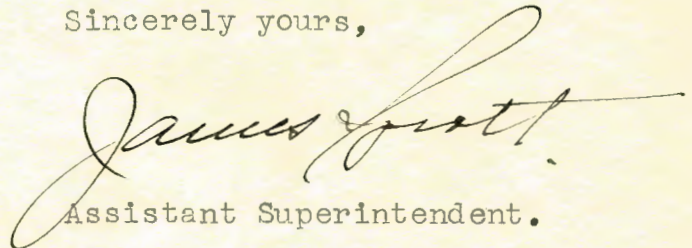 Sincerely yours,
James
Assistant Superintendent.